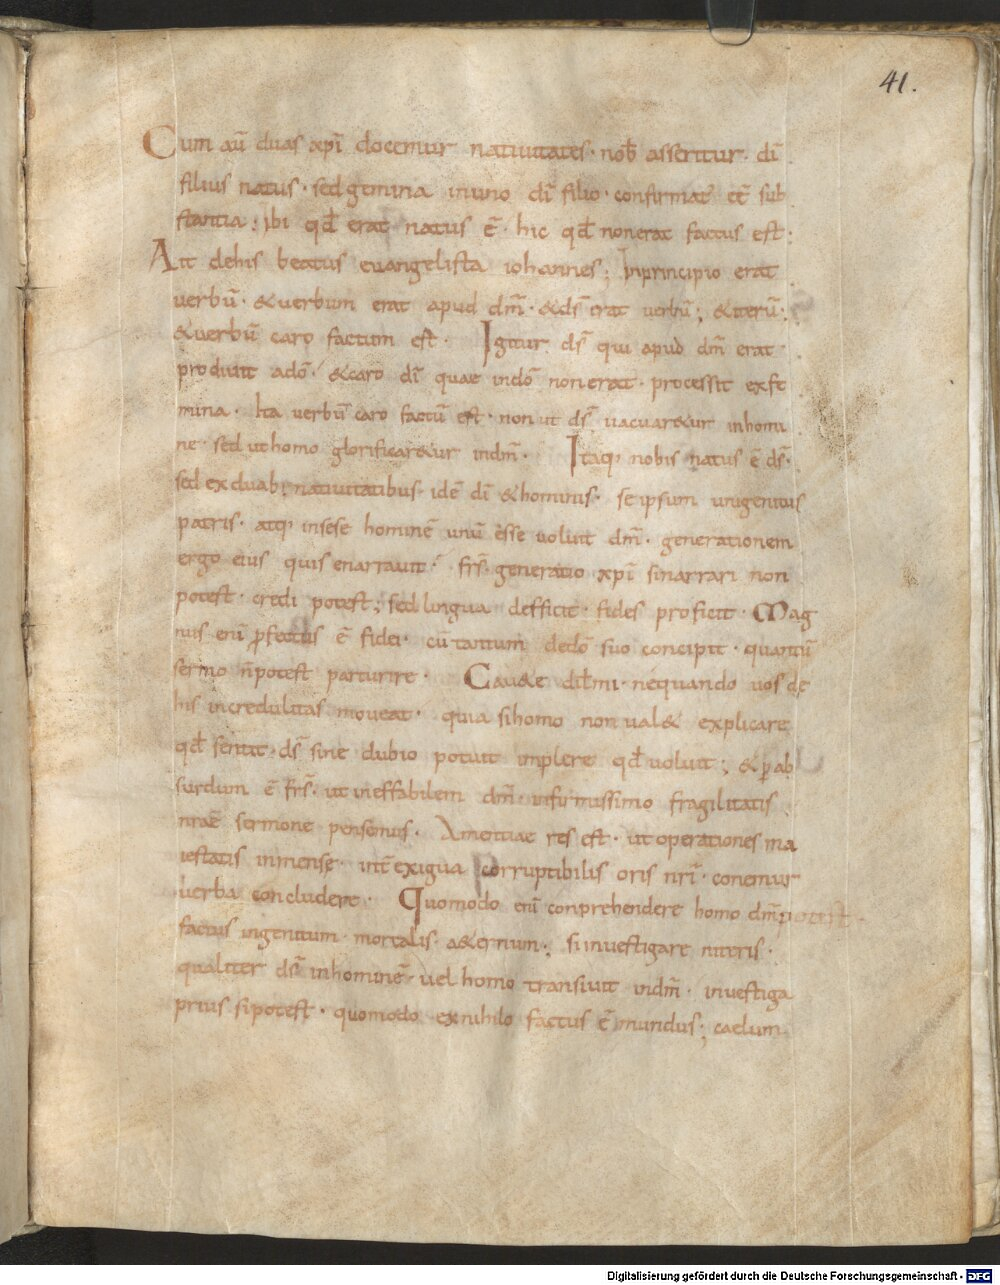 41.
Cum aū duas xpī docemur nativitates · nob̄ asseritur · dī
filius natus · sed gemina inuno dī filio · confirmat̄ eē sub
stantia; Ibi qd̄ erat natus ē · hic qd̄ nonerat factus est;
Ait dehis beatus euangelista iohannes; Inprincipio erat
uerbū · &uerbum erat apud dm̄ · &ds̄ erat uerbū; &iterū;
&uerbū caro factum est · Igitur ds̄ qui apud dm̄ erat
prodiuit adō · &caro dī quae indō nonerat · processit exfe
mina · Ita uerbū caro factū est · non ut ds̄ uacuar&ur inhomi
ne · sed uthomo glorificar&ur indm̄ · Itaq; nobis natus ē ds̄ ·
sed ex duab; natiuitatibus · idē dī &hominis · se ipsum unigenitus
patris · atq; insese hominē unū esse uoluit dm̄ · generationem
ergo eius quis enarrauit · frs̄ · generatio xpī sinarrari non
potest · credi potest; sed lingua defficit · fides proficit · Mag
nus enī ꝓfectus ē fidei · cū tantum dedō suo concipit · quantū
sermo n̄potest parturire · Cau&e dil̄mi · nequando uos de
his incredulitas moueat · quia sihomo non ual& explicare
qd̄ sentit · ds̄ sine dubio potuit implere qd̄ uoluit; &ꝑab
surdum ē frs̄ · ut ineffabilem dm̄ · infirmissimo fragilitatis
nrae̅ sermone pensemus · Amentiae res est · ut operationes ma
iestatis inmense · int̄ exigua corruptibilis oris nrī · conemur
uerba concludere · Quomodo enī conprehendere homo dm̄ potest ·
factus ingenitum · mortalis · a&ernum; si inuestigare niteris ·
qualiter ds̄ inhominē · uel homo transiuit indm̄ · inuestiga
prius sipotest · quomodo exnihilo factus ē mundus; caelum
Digitalisierung gefördert durch die Deutsche Forschungsgemeinschaft - DFG